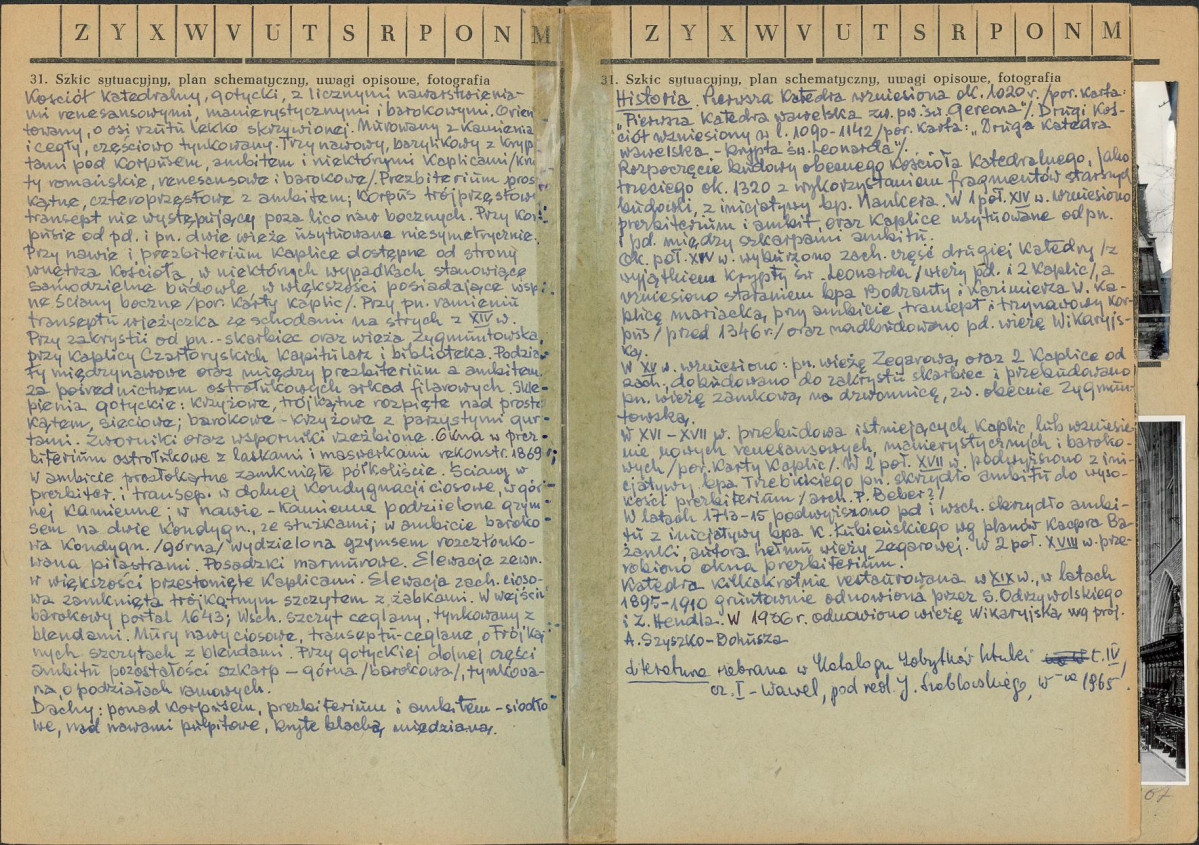 Z Y X W V U T S R P O N M
31. Szkic sytuacyjny, plan schematyczny, uwagi opisowe, fotografia
Kościół katedralny, gotycki, z licznymi nawarstwienia-
mi renesansowymi, manierystycznymi i barokowymi. Orien
towany, o osi rzutu lekko skrzywionej. Murowany z kamienia
i cegły, częściowo tynkowany. Trzynawowy, bazylikowy z kryp
tami pod korpusem, ambitem i niektórymi kaplicami /kry
ty romańskie, renesansowe i barokowe/. Prezbiterium pros
kątne, czteroprzęsłowe z ambitem; korpus trójprzęsłow
transept nie występujący poza lico naw bocznych. Przy kor
pusie od pd. i pn. dwie wieże usytuowane niesymetrycznie.
Przy nawie i prezbiterium kaplice dostępne od strony
wnętrza kościoła, w niektórych wypadkach stanowiące
samodzielne budowle, w większości posiadające wspl
ne ściany boczne /por. karty kaplic/. Przy pn. ramieniu
transeptu wieżyczka ze schodami na strych z XIV w.
Przy zakrystii od pn. - skarbiec oraz wieża Zygmuntowska,
przy kaplicy Czartoryskich kapitularz i biblioteka. Podzia
ły międzynawowe oraz między prezbiterium a ambitem
za pośrednictwem ostrołukowych arkad filarowych. Skle
pienia gotyckie: krzyżowe, trójkątne rozpięte nad prosto
kątem, sieciowe; barokowe - krzyżowe z parzystymi gur
tami. Zworniki oraz wsporniki rzeźbione. Okna w prez-
biterium ostrołukowe z laskami i maswerkami rekonstr. 1869
w ambicie prostokątne zamknięte półkoliście. Ściany w
prezbiter. i transep. w dolnej kondygnacji ciosowe, w gór
nej kamienne; w nawie - kamienne podzielone gzym
sem na dwie kondygn., ze służkami; w ambicie baroko
wa kondygn. /górna/ wydzielona gzymsem rozczłonko-
wana pilastrami. Posadzki marmurowe. Elewacje zewn.
w większości przesłonięte kaplicami. Elewacja zach. cioso-
wa zamknięta trójkątnym szczytem z żabkami. W wejściu
barokowy portal 1643; Wsch. szczyt ceglany, tynkowany z
blendami. Mury nawy ciosowe, transeptu-ceglane, o trójką
nych szczytach z blendami. Przy gotyckiej dolnej części
ambitu pozostałości szkarp - górna /barokowa/, tynkowa-
na, o podziałach ramowych.
Dachy: ponad korpusem, prezbiterium i ambitem - siodło
we, nad nawami pulpitowe, kryte blachą miedzianą.
Z Y X W V U T S R P O N M
31. Szkic sytuacyjny, plan schematyczny, uwagi opisowe, fotografia
Historia. Pierwsza katedra wzniesiona ok. 1020 r. /por. karta:
"Pierwsza katedra wawelska zw. pw. św. Gereona"/. Drugi koś-
ciół wzniesiony w l. 1090-1142 /por. karta: "Druga katedra
wawelska - krypta św. Leonarda"/.
Rozpoczęcie budowy obecnego kościoła katedralnego, jako
trzeciego ok. 1320 z wykorzystaniem fragmentów starszych
budowli, z inicjatywy bp. Nankera. W 1 poł. XIV w. wzniesiono
prezbiterium i ambit, oraz kaplice usytuowane od pn.
i pd. między szkarpami ambitu.
Ok. poł. XIV w. wyburzono zach. część drugiej katedry /z
wyjątkiem krypty św. Leonarda/ wieży pd. i 2 kaplic/, a
wzniesiono staraniem bpa Bodzanty i Kazimierza W. ka-
plicę mariacką, przy ambicie, transept i trzynawowy kor-
pus /przed 1346 r./ oraz nadbudowano pd. wieżę Wikaryjs-
ką.
W XV w. wzniesiono: pn. wieżę Zegarową, oraz 2 kaplice od
zach., dobudowano do zakrystii skarbiec i przebudowano
pn. wieżę zamkową, na dzwonnicę, zw. obecnie Zygmun-
towską.
W XVI - XVII w. przebudowa istniejących kaplic lub wzniesie-
nie nowych renesansowych, manierystycznych i baroko-
wych /por. karty kaplic/. W 2 poł. XVII w. podwyższono z ini-
cjatywy bpa Trzebickiego pn. skrzydło ambitu do wyso-
kości prezbiterium /arch. P. Beber?/
W latach 1713-15 podwyższono pd i wsch. skrzydło ambi-
tu z inicjatywy bpa K. Łubieńskiego wg planów Kacpra Ba-
żanki, autora hełmu wieży Zegarowej. W 2 poł. XVIII w. prze-
robiono okna prezbiterium.
Katedra kilkakrotnie restaurowana w XIX w., w latach
1895-1910 gruntownie odnowiona przez S. Odrzywolskiego
i Z. Hendla. W 1936 r. odnowiono wieżę Wikaryjską wg proj.
A. Szyszko-Bohusza
Literatura zebrana w Katalogu Zabytków Sztuki t. IV,
cz. I - Wawel, pod red. J. Szablowskiego, W-wa 1965.